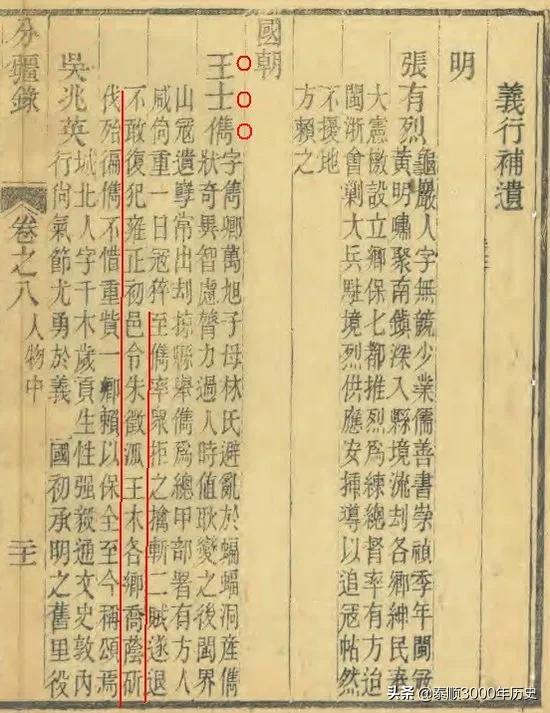 義行補遺
明
張有烈龜巖人字無競少業儒善書崇禎季年閩寇
黃明嘯聚南鎮深入縣境流刦各鄉紳民奉
大憲檄設立鄉保七都推烈爲練總督率有方迨
閩浙會剿大兵駐境烈供應安揷導以追寇帖然
不擾地
方賴之
國朝
王士儁字儁卿萬旭子母林氏避亂於蝙蝠洞產儁
狀奇異智慮膂力過人時値耿變之後閩界
山寇遺孽常出刦掠縣舉儁爲總甲部署有方人
咸倚重一日寇猝至儁率眾拒之擒斬二賊遂退
不敢復犯雍正初邑令朱徵派王木各鄉喬蔭斫
伐殆徧儁不惜重貲一鄉賴以保全至今稱頌焉
吳兆英城北人字千木歲貢生性强毅通文史敦內
行尚氣節尤勇於義 國初承明之舊里役
分疆錄 卷之八 人物中 二十
头条 @泰顺3000年历史